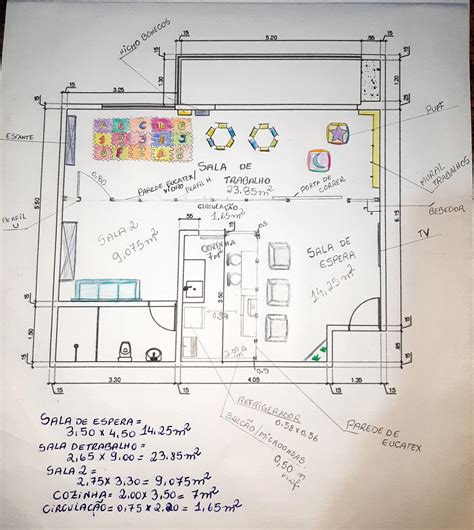 NICHO BONECOS
15
5.20
15
15
3.25
15
ESTANTE
PUFF
A B C D E
SALA DE
TRABALHO
23.85m²
MURAL
TRABALHOS
0.80
PAREDE EUCATEX/
VIDRO
PERFIL H
PORTA DE
CORRER
CIRCULAÇÃO
1,65m²
BEBEDOR
PERFIL
U
5.50
SALA 2
9,075m²
COZINHA
7m²
SALA DE
ESPERA
14,25m²
TV
6.15
15
1.50
15
15
3.30
15
4.05
15
1.35
15
REFRIGERADOR
0.58x0.56
BALCÃO/MICROONDAS
0,50 m
PAREDE DE
EUCATEX
SALA DE ESPERA =
3,50 x 4,50 14,25m²
SALA DE TRABALHO =
2,65 x 9.00 = 23.85m²
SALA 2 =
2,75 x 3,30 = 9,075m²
COZINHA = 2.00 x 3,50 = 7m²
CIRCULAÇÃO = 0,75 x 2.20 = 1,65m²